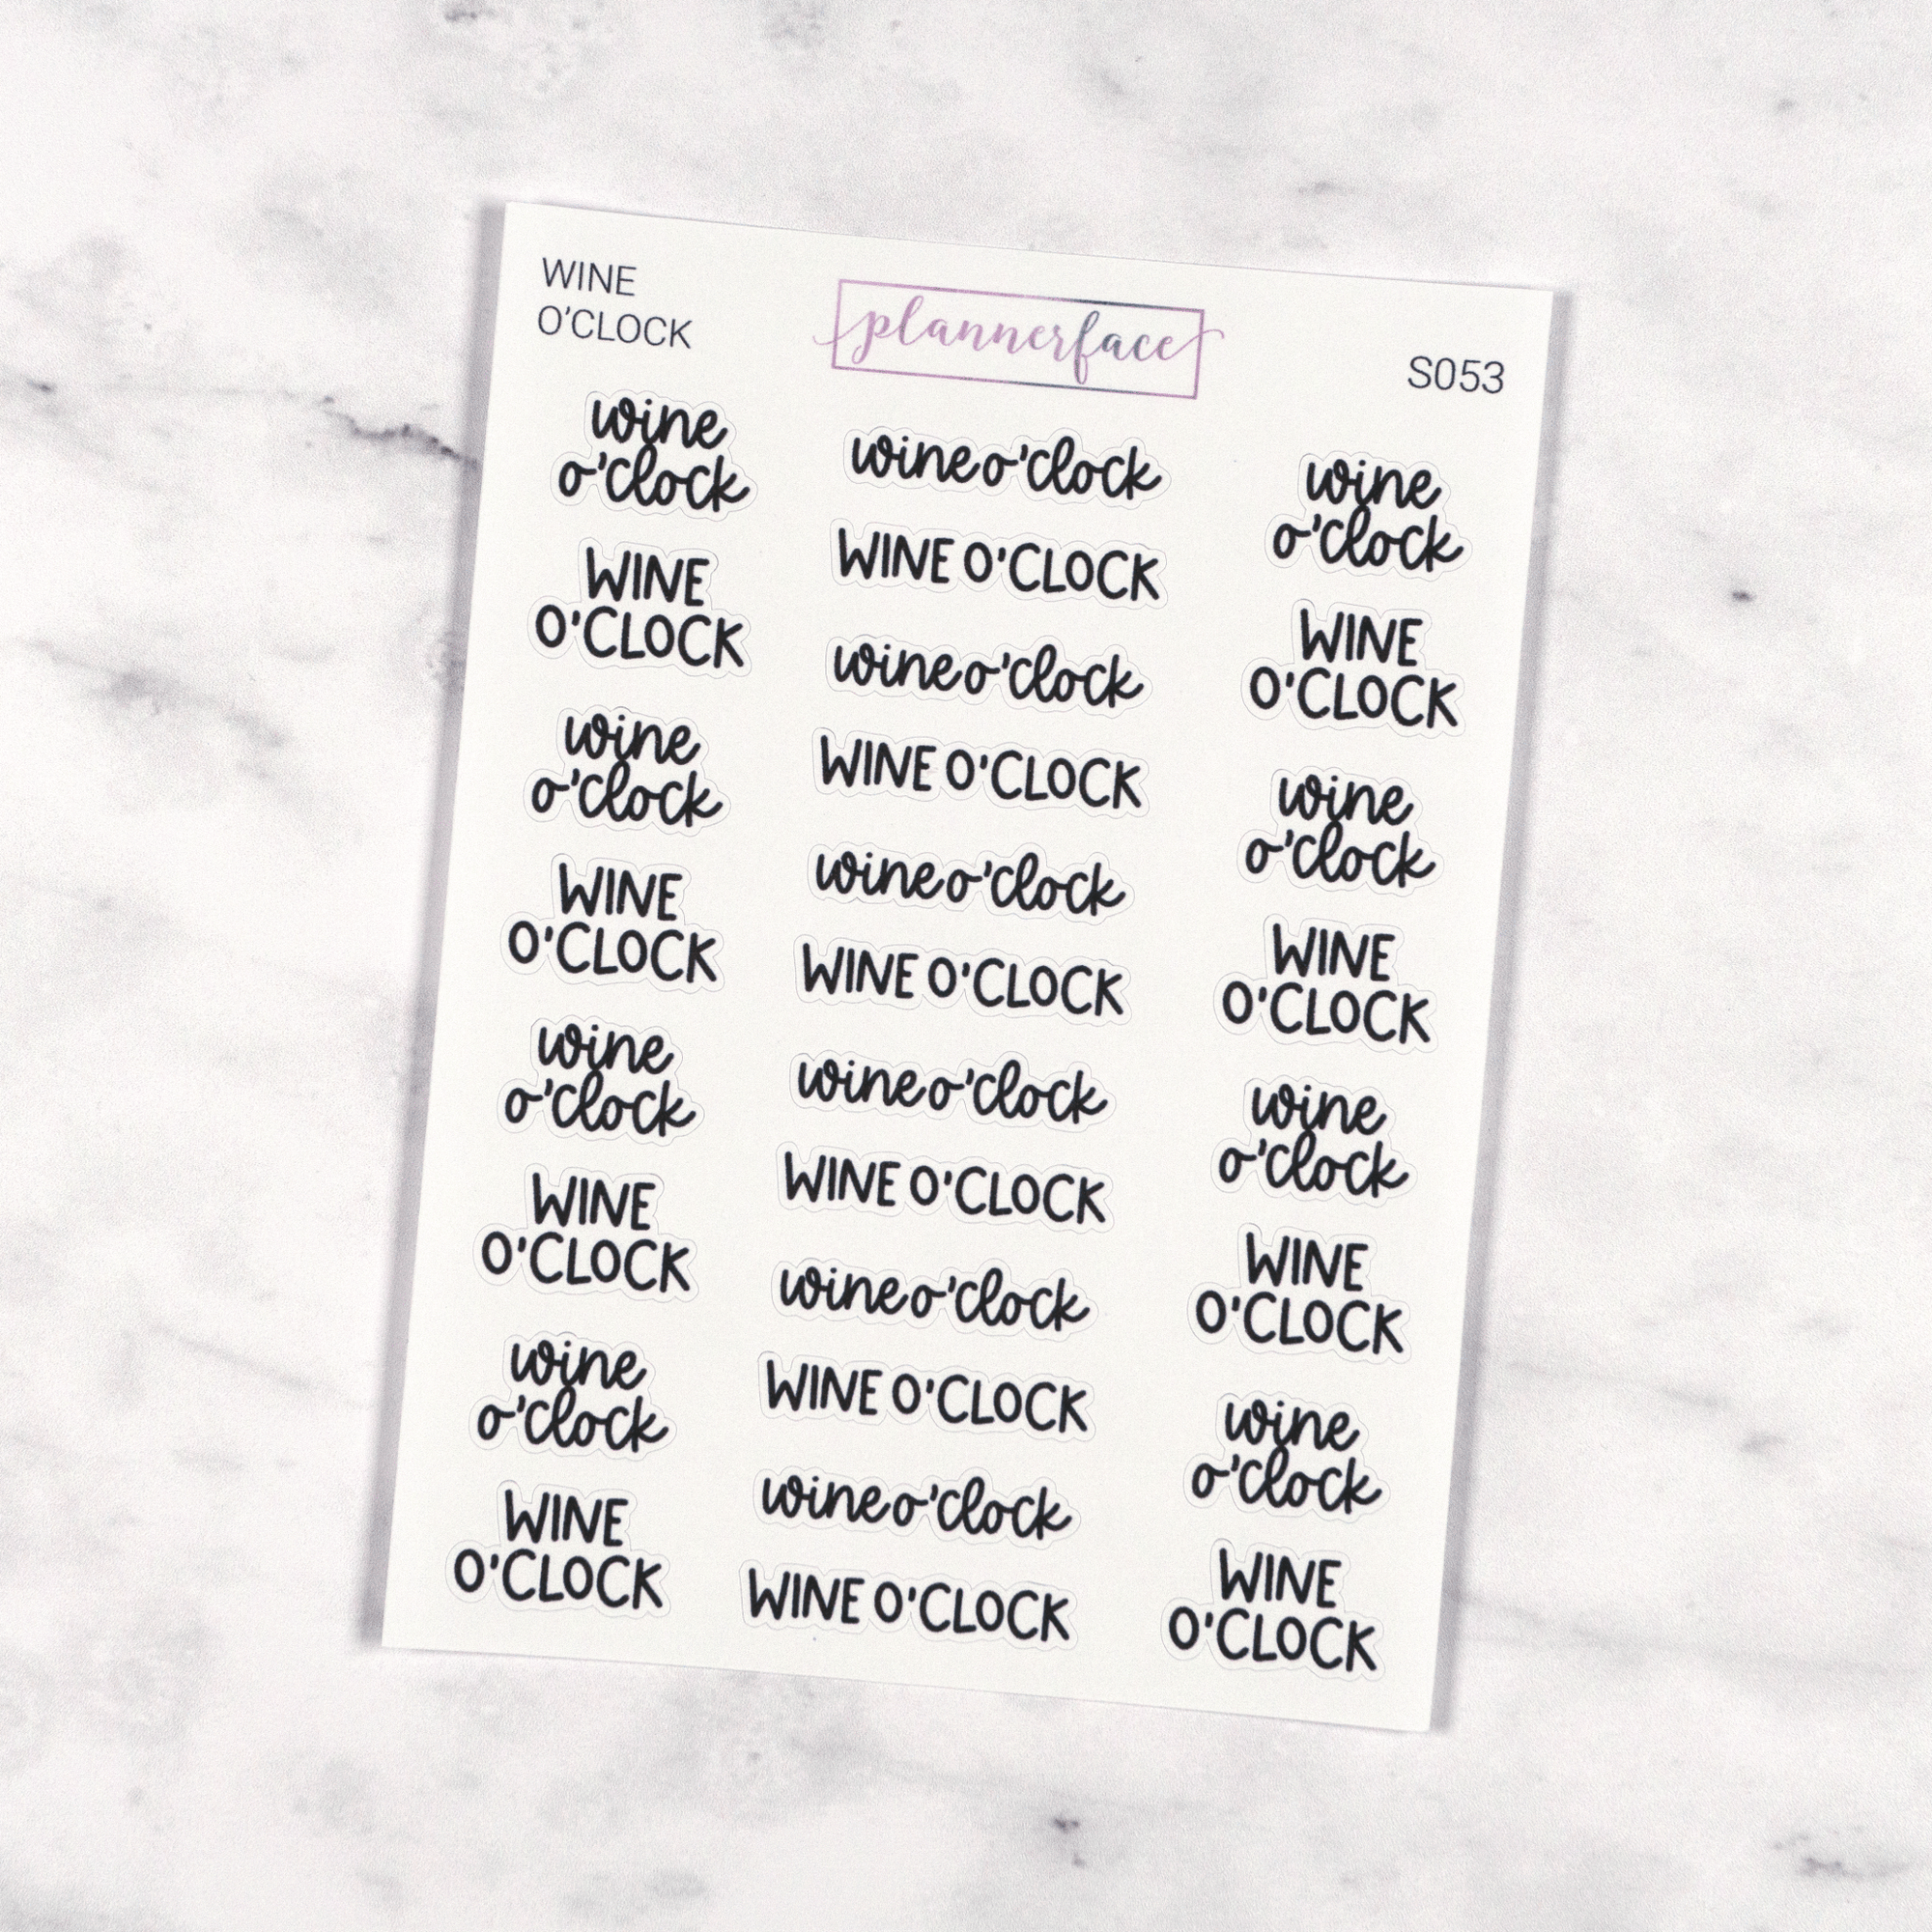 WINE
O'CLOCK
plannerface
S053
wine
o'clock
WINE
O'CLOCK
wine
o'clock
WINE
O'CLOCK
wine
o'clock
WINE
O'CLOCK
wine
o'clock
WINE
O'CLOCK
wine o'clock
WINE O'CLOCK
wine o'clock
WINE O'CLOCK
wine o'clock
WINE O'CLOCK
wine o'clock
WINE O'CLOCK
wine o'clock
WINE O'CLOCK
wine o'clock
WINE O'CLOCK
wine
o'clock
WINE
O'CLOCK
wine
o'clock
WINE
O'CLOCK
wine
o'clock
WINE
O'CLOCK
wine
o'clock
WINE
O'CLOCK